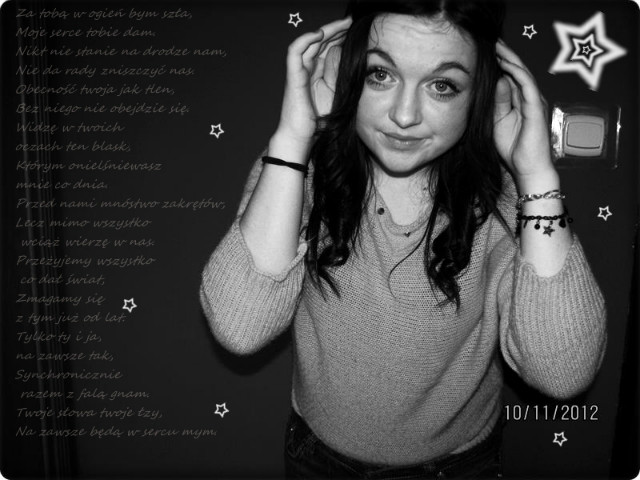 Za tobą w ogień bym szła,
Moje serce tobie dam.
Nikt nie stanie na drodze nam,
Nie da rady zniszczyć nas.
Obecność twoja jak tlen,
Bez niego nie obejdzie się.
Widzę w twoich
oczach ten blask,
Którym onielśniewasz
mnie co dnia.
Przed nami mnóstwo zakrętów,
Lecz mimo wszystko
wciąż wierzę w nas.
Przeżyjemy wszystko
co dał świat,
Zmagamy się
z tym już od lat.
Tylko ty i ja,
na zawsze tak,
Synchronicznie
razem z falą gnam.
Twoje słowa twoje łzy,
Na zawsze będą w sercu mym.
10/11/2012